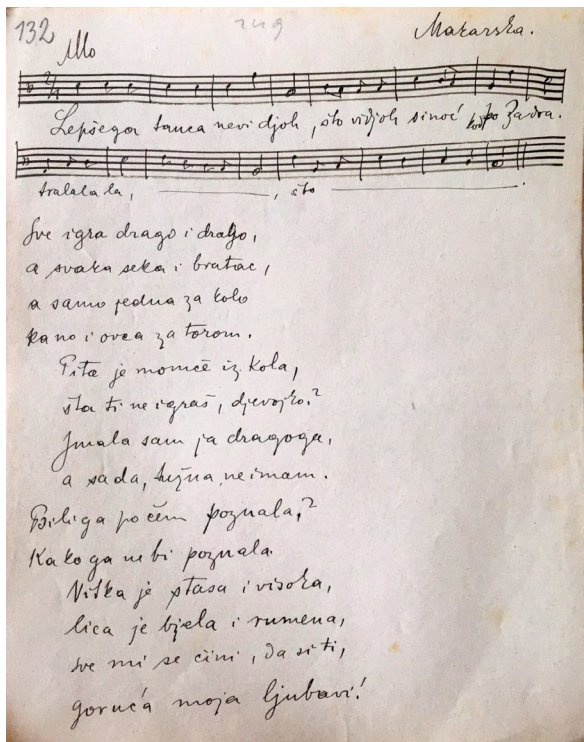 132
Makarska.
Allo
Lepšega tanca nevidjoh, što vidjoh sinoć po Zadra.
tralalala, što
Sve igra drago i drago,
a svaka seka i bratac,
a samo jedna za kolo
kano i ovca za torom.
Pita je momče iz kola,
šta ti ne igraš, djevojko?
Jmala sam ja dragoga,
a sada, tužna, neimam.
Bili ga po čem poznala,?
Kako ga ne bi poznala.
Vitka je stasa i visoka,
lica je bjela i rumena,
sve mi se čini, da si ti,
goruća moja ljubavi!